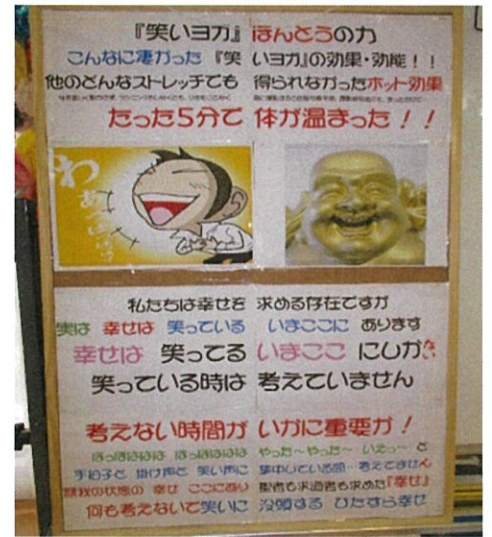 『笑いヨガ』ほんとうの力
こんなに凄かった『笑いヨガ』の効果・効能！！
他のどんなストレッチでも 得られなかったホット効果
たった5分で 体が温まった！！
わあ
私たちは幸せを 求める存在ですが
実は 幸せは 笑っている いまここに あります
幸せは 笑ってる いまここ にしかない
笑っている時は 考えていません
考えない時間が いかに重要か！
ほっほはははは ほっほはははは やった〜やった〜 いえぃ〜 と
手拍子と 掛け声と 笑い声に 集中している間…考えてません
無我の状態の 幸せ ここにあり 聖者も求道者も求めた『幸せ』
何も考えないで笑いに 没頭する ひたすら幸せ